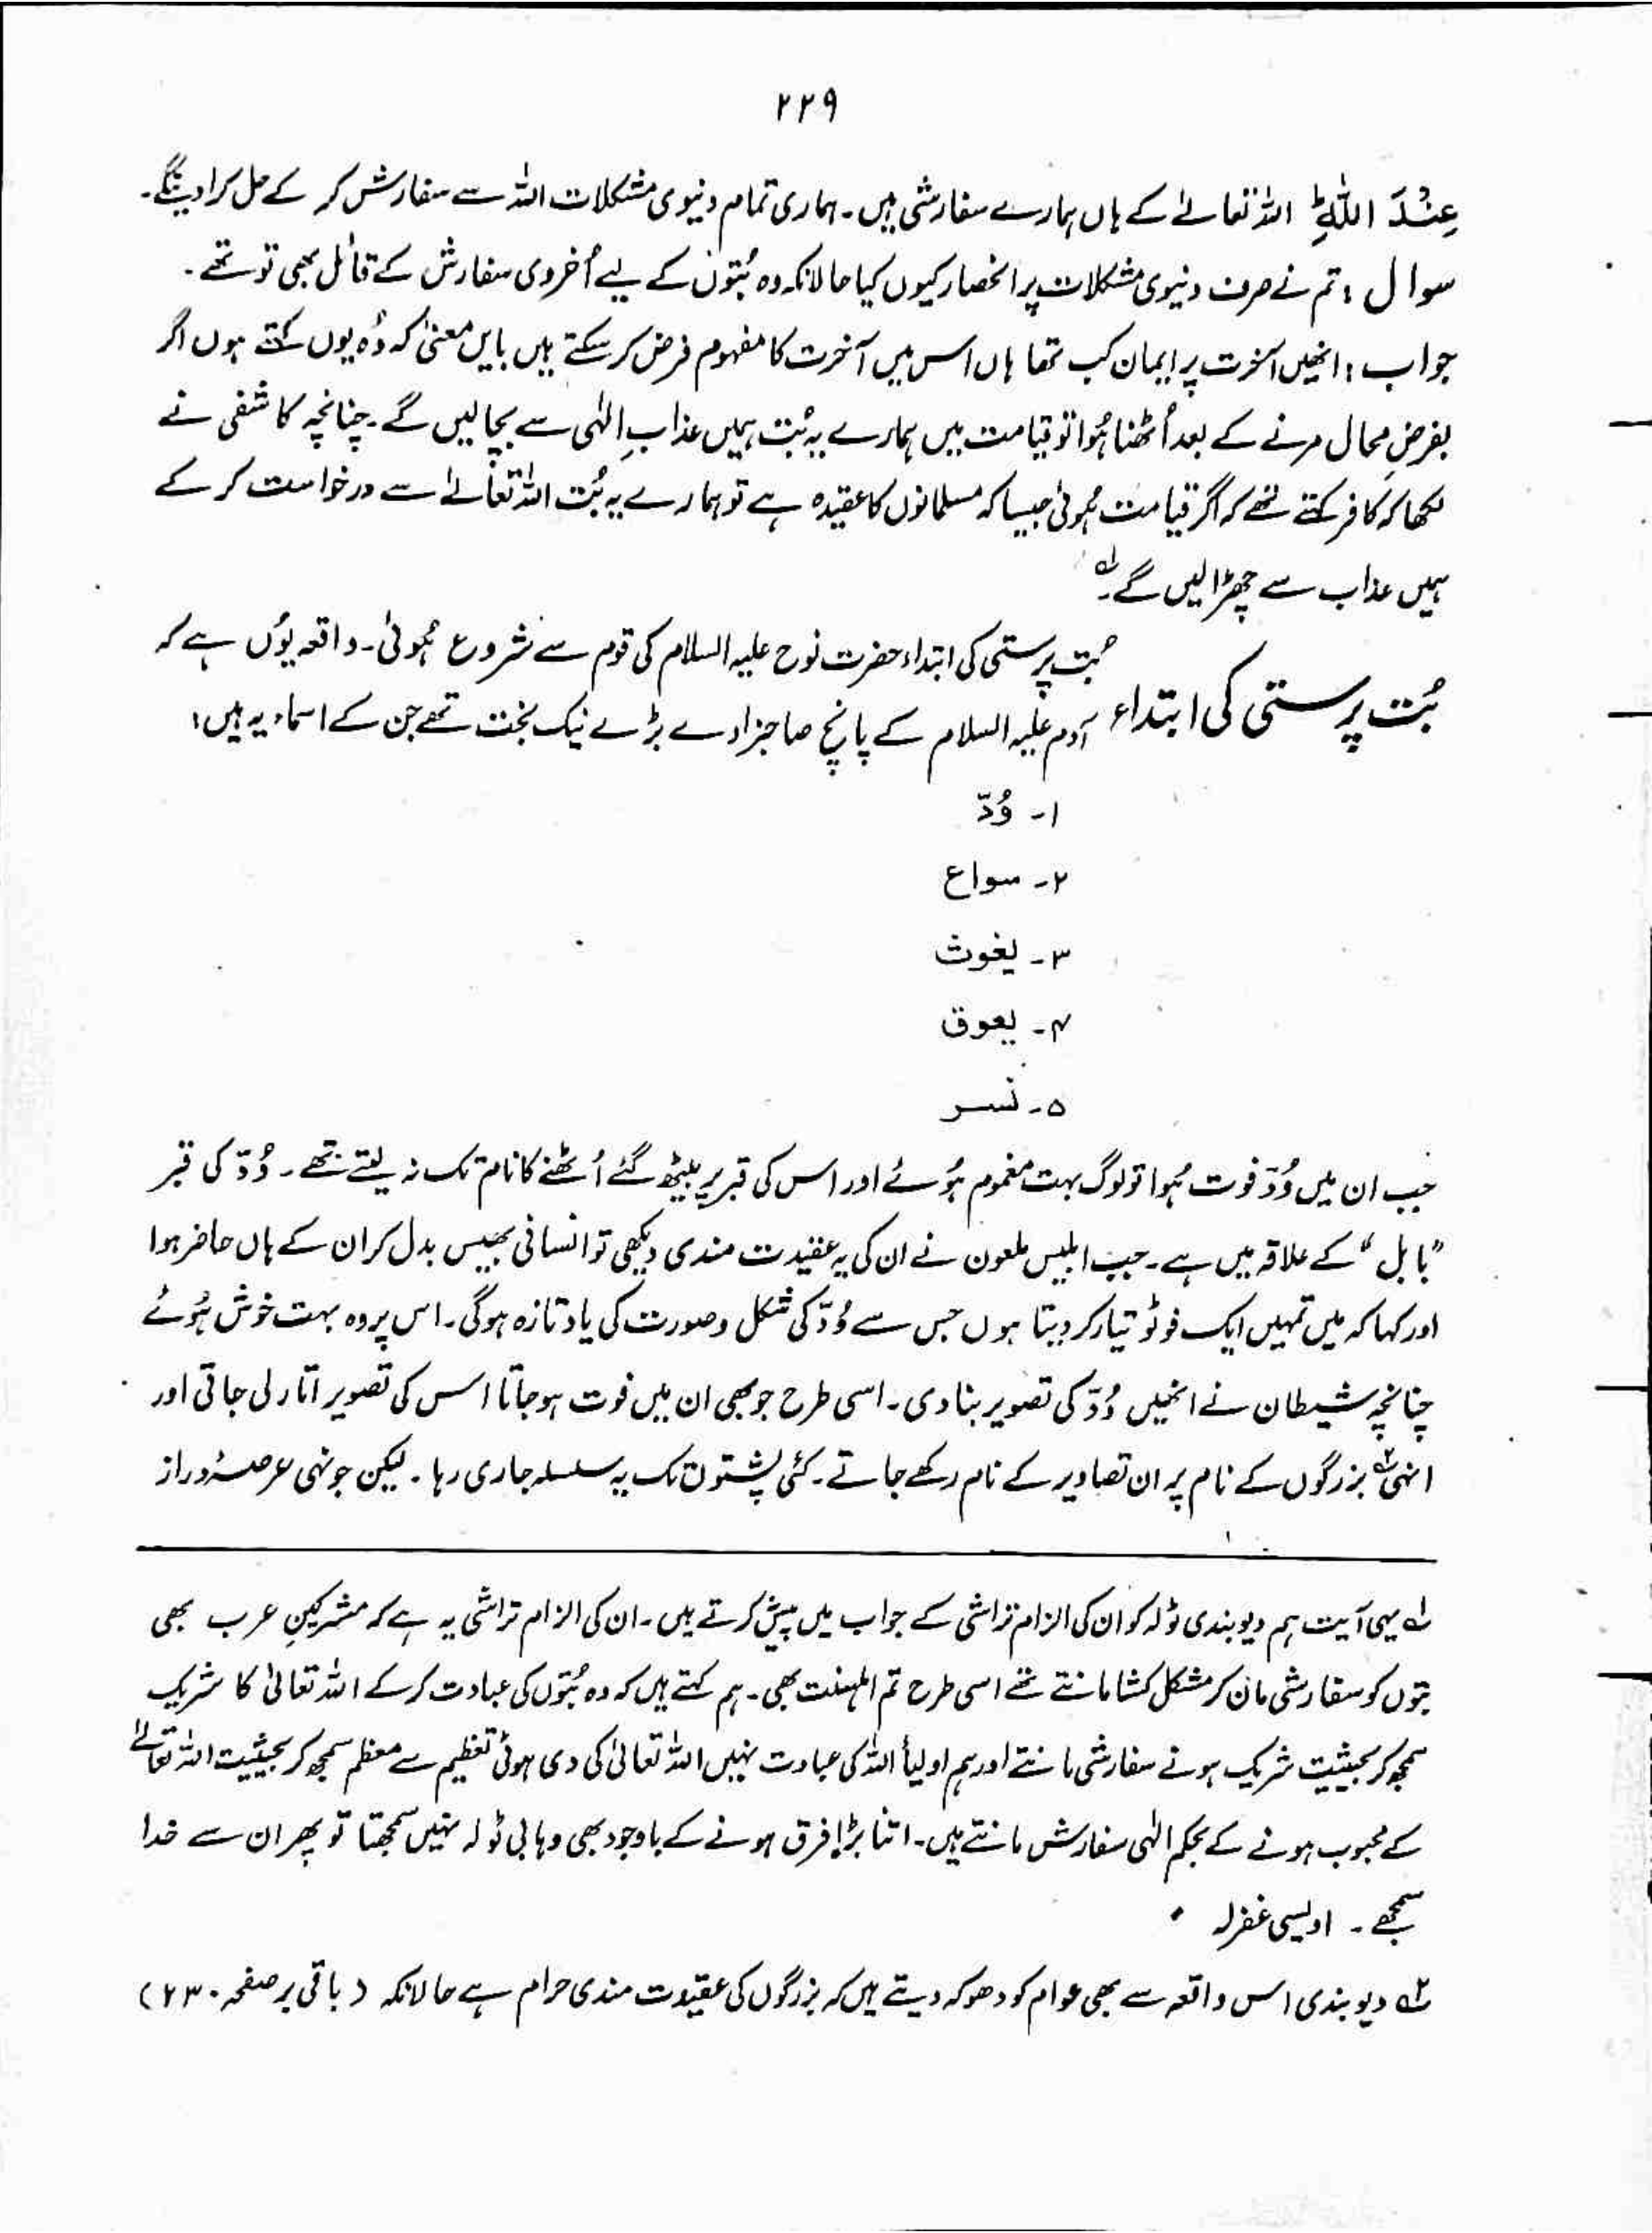 ۲۲۹
عِنْدَ اللّٰہِ ؕ اللہ تعالےٰ کے ہاں ہمارے سفارشی ہیں۔ ہماری تمام دنیوی مشکلات اللہ سے سفارش کر کے حل کرا دینگے۔
سوال : تم نے صرف دنیوی مشکلات پر انحصار کیوں کیا حالانکہ وہ بُتوں کے لیے اُخروی سفارش کے قائل بھی تو تھے۔
جواب : انھیں آخرت پر ایمان کب تھا ہاں اس میں آخرت کا مفہوم فرض کر سکتے ہیں بایں معنیٰ کہ وُہ یوں کہتے ہوں اگر
بفرضِ محال مرنے کے بعد اُٹھنا ہُوا تو قیامت میں ہمارے یہ بُت ہمیں عذابِ الٰہی سے بچا لیں گے۔ چنانچہ کاشفی نے
لکھا کہ کافر کہتے تھے کہ اگر قیامت ہُوئی جیسا کہ مسلمانوں کا عقیدہ ہے تو ہمارے یہ بُت اللہ تعالےٰ سے درخواست کر کے
ہمیں عذاب سے چھڑا لیں گے۔ؔلہ
بُت پرستی کی ابتداء
بُت پرستی کی ابتداء حضرت نوح علیہ السلام کی قوم سے شروع ہُوئی۔ واقعہ یوُں ہے کہ
آدم علیہ السلام کے پانچ صاحبزادے بڑے نیک بخت تھے جن کے اسماء یہ ہیں :
۱۔ وُدّ
۲۔ سواع
۳۔ یغوث
۴۔ یعوق
۵۔ نسر
جب ان میں وُدّ فوت ہُوا تو لوگ بہت مغموم ہُوئے اور اس کی قبر پر بیٹھ گئے اُٹھنے کا نام تک نہ لیتے تھے۔ وُدّ کی قبر
”بابل“ کے علاقہ میں ہے۔ جب ابلیس ملعون نے ان کی یہ عقیدت مندی دیکھی تو انسانی بھیس بدل کر ان کے ہاں حاضر ہوا
اور کہا کہ میں تمہیں ایک فوٹو تیار کر دیتا ہوں جس سے وُدّ کی شکل و صورت کی یاد تازہ ہوگی۔ اس پر وہ بہت خوش ہُوئے
چنانچہ شیطان نے انھیں وُدّ کی تصویر بنا دی۔ اسی طرح جو بھی ان میں فوت ہو جاتا اس کی تصویر اتار لی جاتی اور
انہی ۲ہ بزرگوں کے نام پر ان تصاویر کے نام رکھے جاتے۔ کئی پشتوں تک یہ سلسلہ جاری رہا۔ لیکن جونہی عرصۂ دراز
لہ یہی آیت ہم دیوبندی ٹولہ کو ان کی الزام تراشی کے جواب میں پیش کرتے ہیں۔ ان کی الزام تراشی یہ ہے کہ مشرکینِ عرب بھی
بتوں کو سفارشی مان کر مشکل کشا مانتے تھے اسی طرح تم اہلسنت بھی۔ ہم کہتے ہیں کہ وہ بُتوں کی عبادت کر کے اللہ تعالیٰ کا شریک
سمجھ کر بحیثیت شریک ہونے سفارشی مانتے اور ہم اولیأ اللہ کی عبادت نہیں اللہ تعالیٰ کی دی ہوئی تعظیم سے معظم سمجھ کر بحیثیت اللہ تعالےٰ
کے محبوب ہونے کے بحکم الٰہی سفارش مانتے ہیں۔ اتنا بڑا فرق ہونے کے باوجود بھی وہابی ٹولہ نہیں سمجھتا تو پھر ان سے خدا
سمجھے۔ اویسی غفرلہ
۲ہ دیوبندی اس واقعہ سے بھی عوام کو دھوکہ دیتے ہیں کہ بزرگوں کی عقیدت مندی حرام ہے حالانکہ (باقی بر صفحہ ۲۳۰)